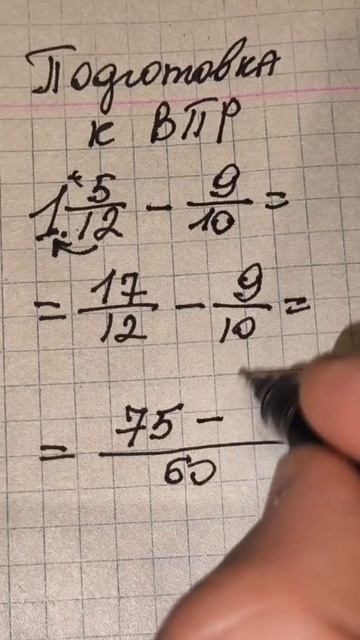 Подготовка
к ВПР
1 5/12 - 9/10 =
= 17/12 - 9/10 =
= 75 - / 60